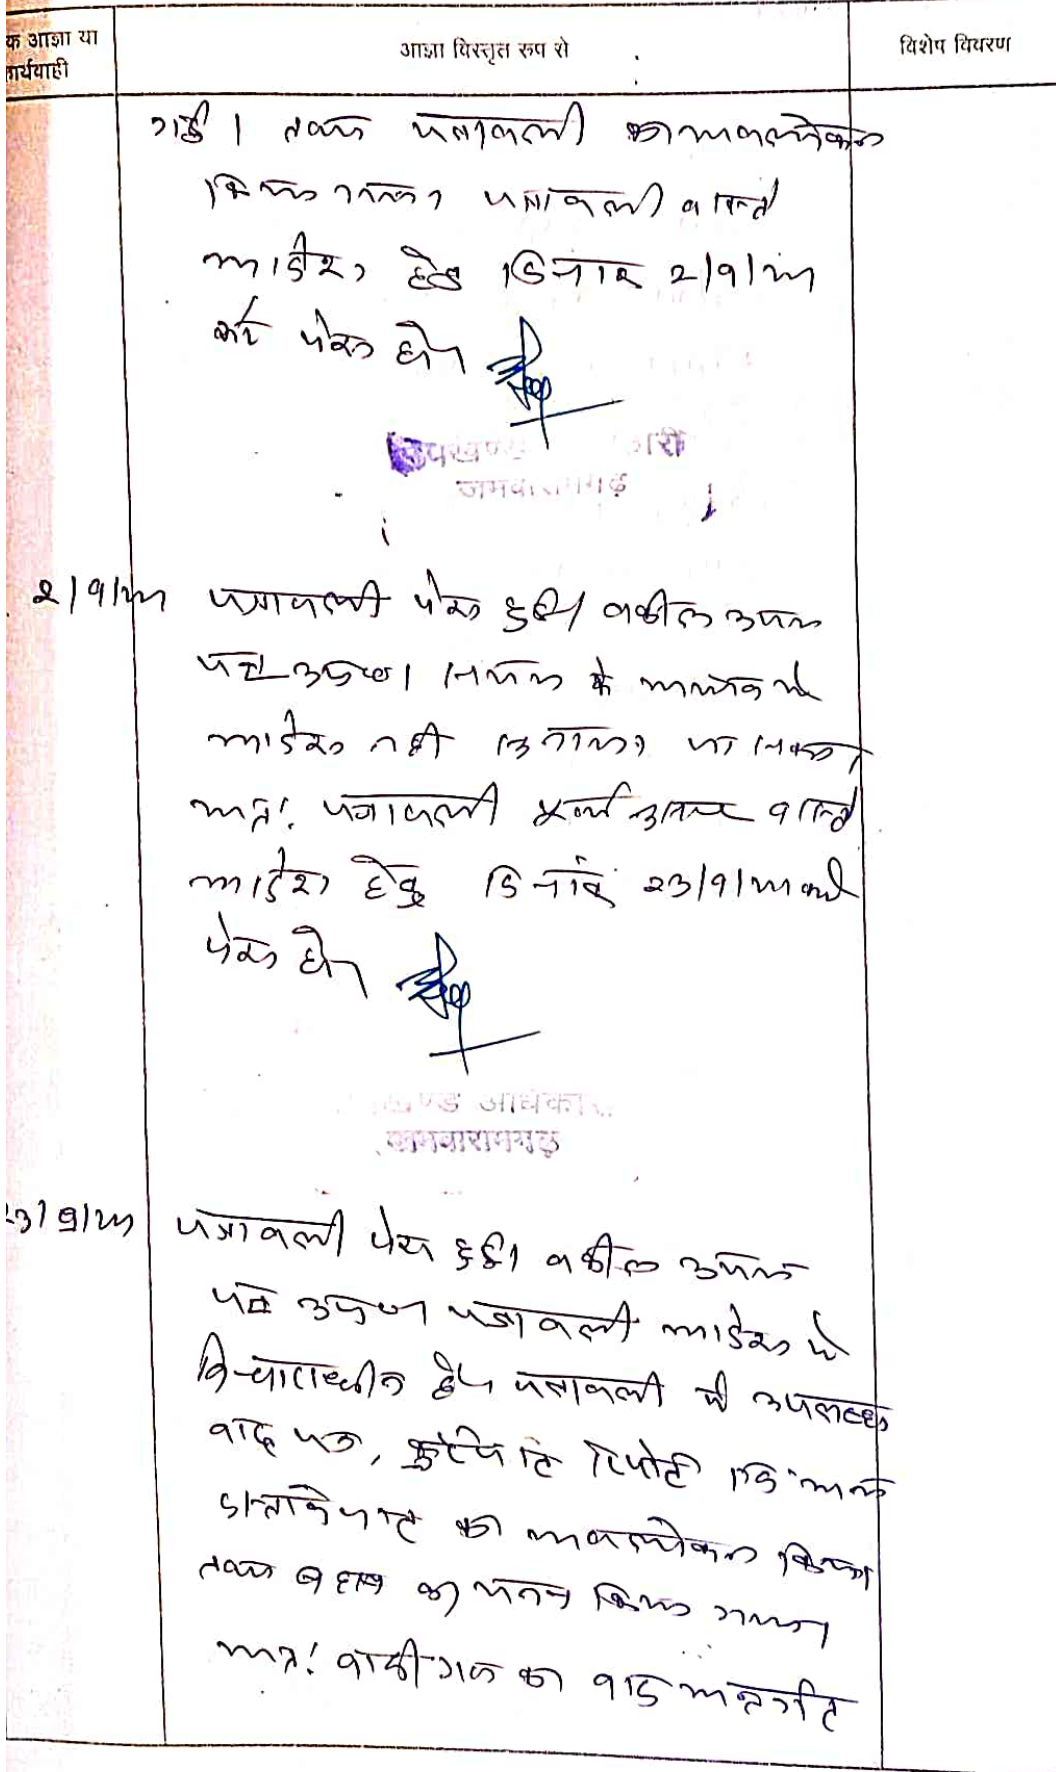 क आज्ञा या
कार्यवाही
आज्ञा विस्तृत रूप से
विशेष विवरण
गई । तथा पत्रावली का अवलोकन
किया गया। पत्रावली वास्ते
आदेश हेतु दिनांक 2/9/
को पेश हो।
उपखण्ड
जमवारामगढ़
2/9/ पत्रावली पेश हुई। वकील उभय
पक्ष उप०। के
आदेश नही जा सका।
अतः पत्रावली वास्ते
आदेश हेतु दिनांक 23/9/ को
पेश हो।
खण्ड अधिका
जमवारामगढ़
23/9/ पत्रावली पेश हुई। वकील उभय
पक्ष उप० पत्रावली आदेश मे
विचाराधीन है। पत्रावली मे उपलब्ध
वाद पत्र, रिपोर्ट
दस्तावेजात का अवलोकन किया
तथा बहस का मनन किया गया।
अतः वादीगण का वाद अन्तर्गत